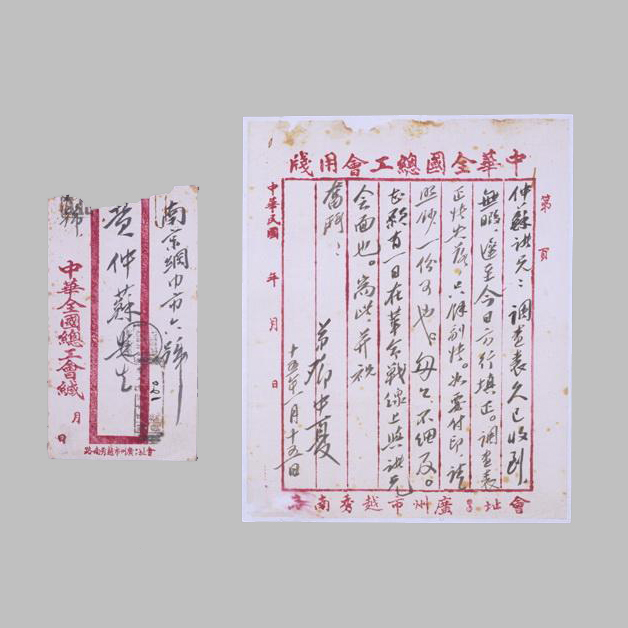 南京網巾市六號
黃仲蘇先生
號
中華全國總工會緘
月
日
會址:廣州市越秀南路
中華全國總工會用牋
第 頁
仲蘇諸兄:調查表久已收到,
無暇,遂至今日方行填正。調查表
正快失落,只餘副快。如需付印,請
照抄一份可也。匆匆不細及。
甚盼有一日在革命戰線上與諸兄
會面也。耑此,并祝
奮鬥!
弟鄧中夏
十五年一月十五日
中華民國 年 月 日
會址:廣州市越秀南